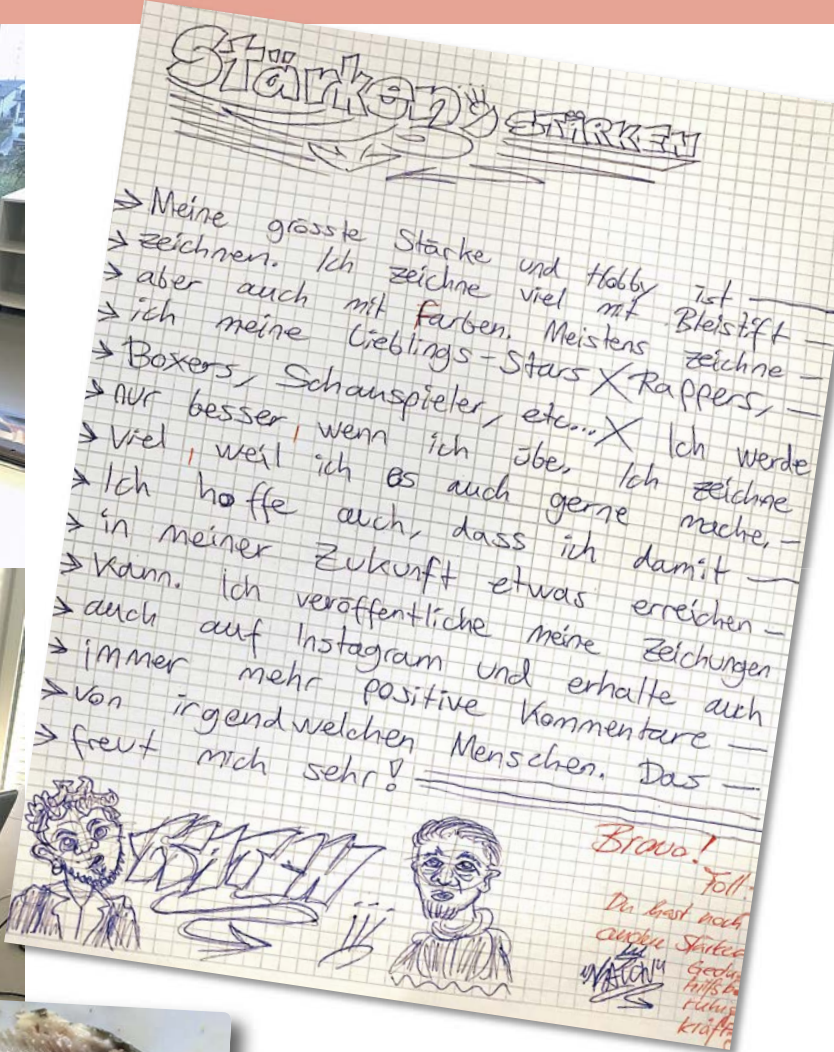 Stärken STÄRKEN
→ Meine grösste Stärke und Hobby ist
→ zeichnen. Ich zeichne viel mit Bleistift
→ aber auch mit Farben. Meistens zeichne
→ ich meine Lieblings-Stars X Rappers,
→ Boxers, Schauspieler, etc... X Ich werde
→ nur besser, wenn ich übe. Ich zeichne
→ viel, weil ich es auch gerne mache.
→ Ich hoffe auch, dass ich damit
→ in meiner Zukunft etwas erreichen
→ kann. Ich veröffentliche meine Zeichungen
→ auch auf Instagram und erhalte auch
→ immer mehr positive Kommentare
→ von irgendwelchen Menschen. Das
→ freut mich sehr!
Bravo!
Toll
Du hast noch
andere Stärken